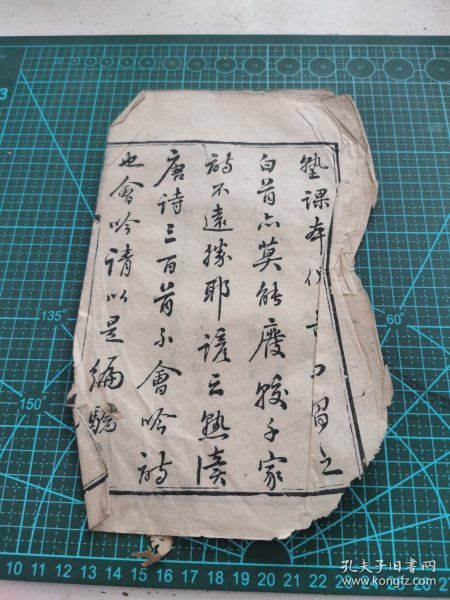 塾課本俾童而習之
白首亦莫能廢較千家
詩不遠勝耶諺云熟讀
唐詩三百首不會吟詩
也會吟請以是編驗
135°
150°
60°
10 11 12 13 14 15 16 17 18 19 20 21 22 23 24 25 26 27
孔夫子旧书网
www.kongfz.com